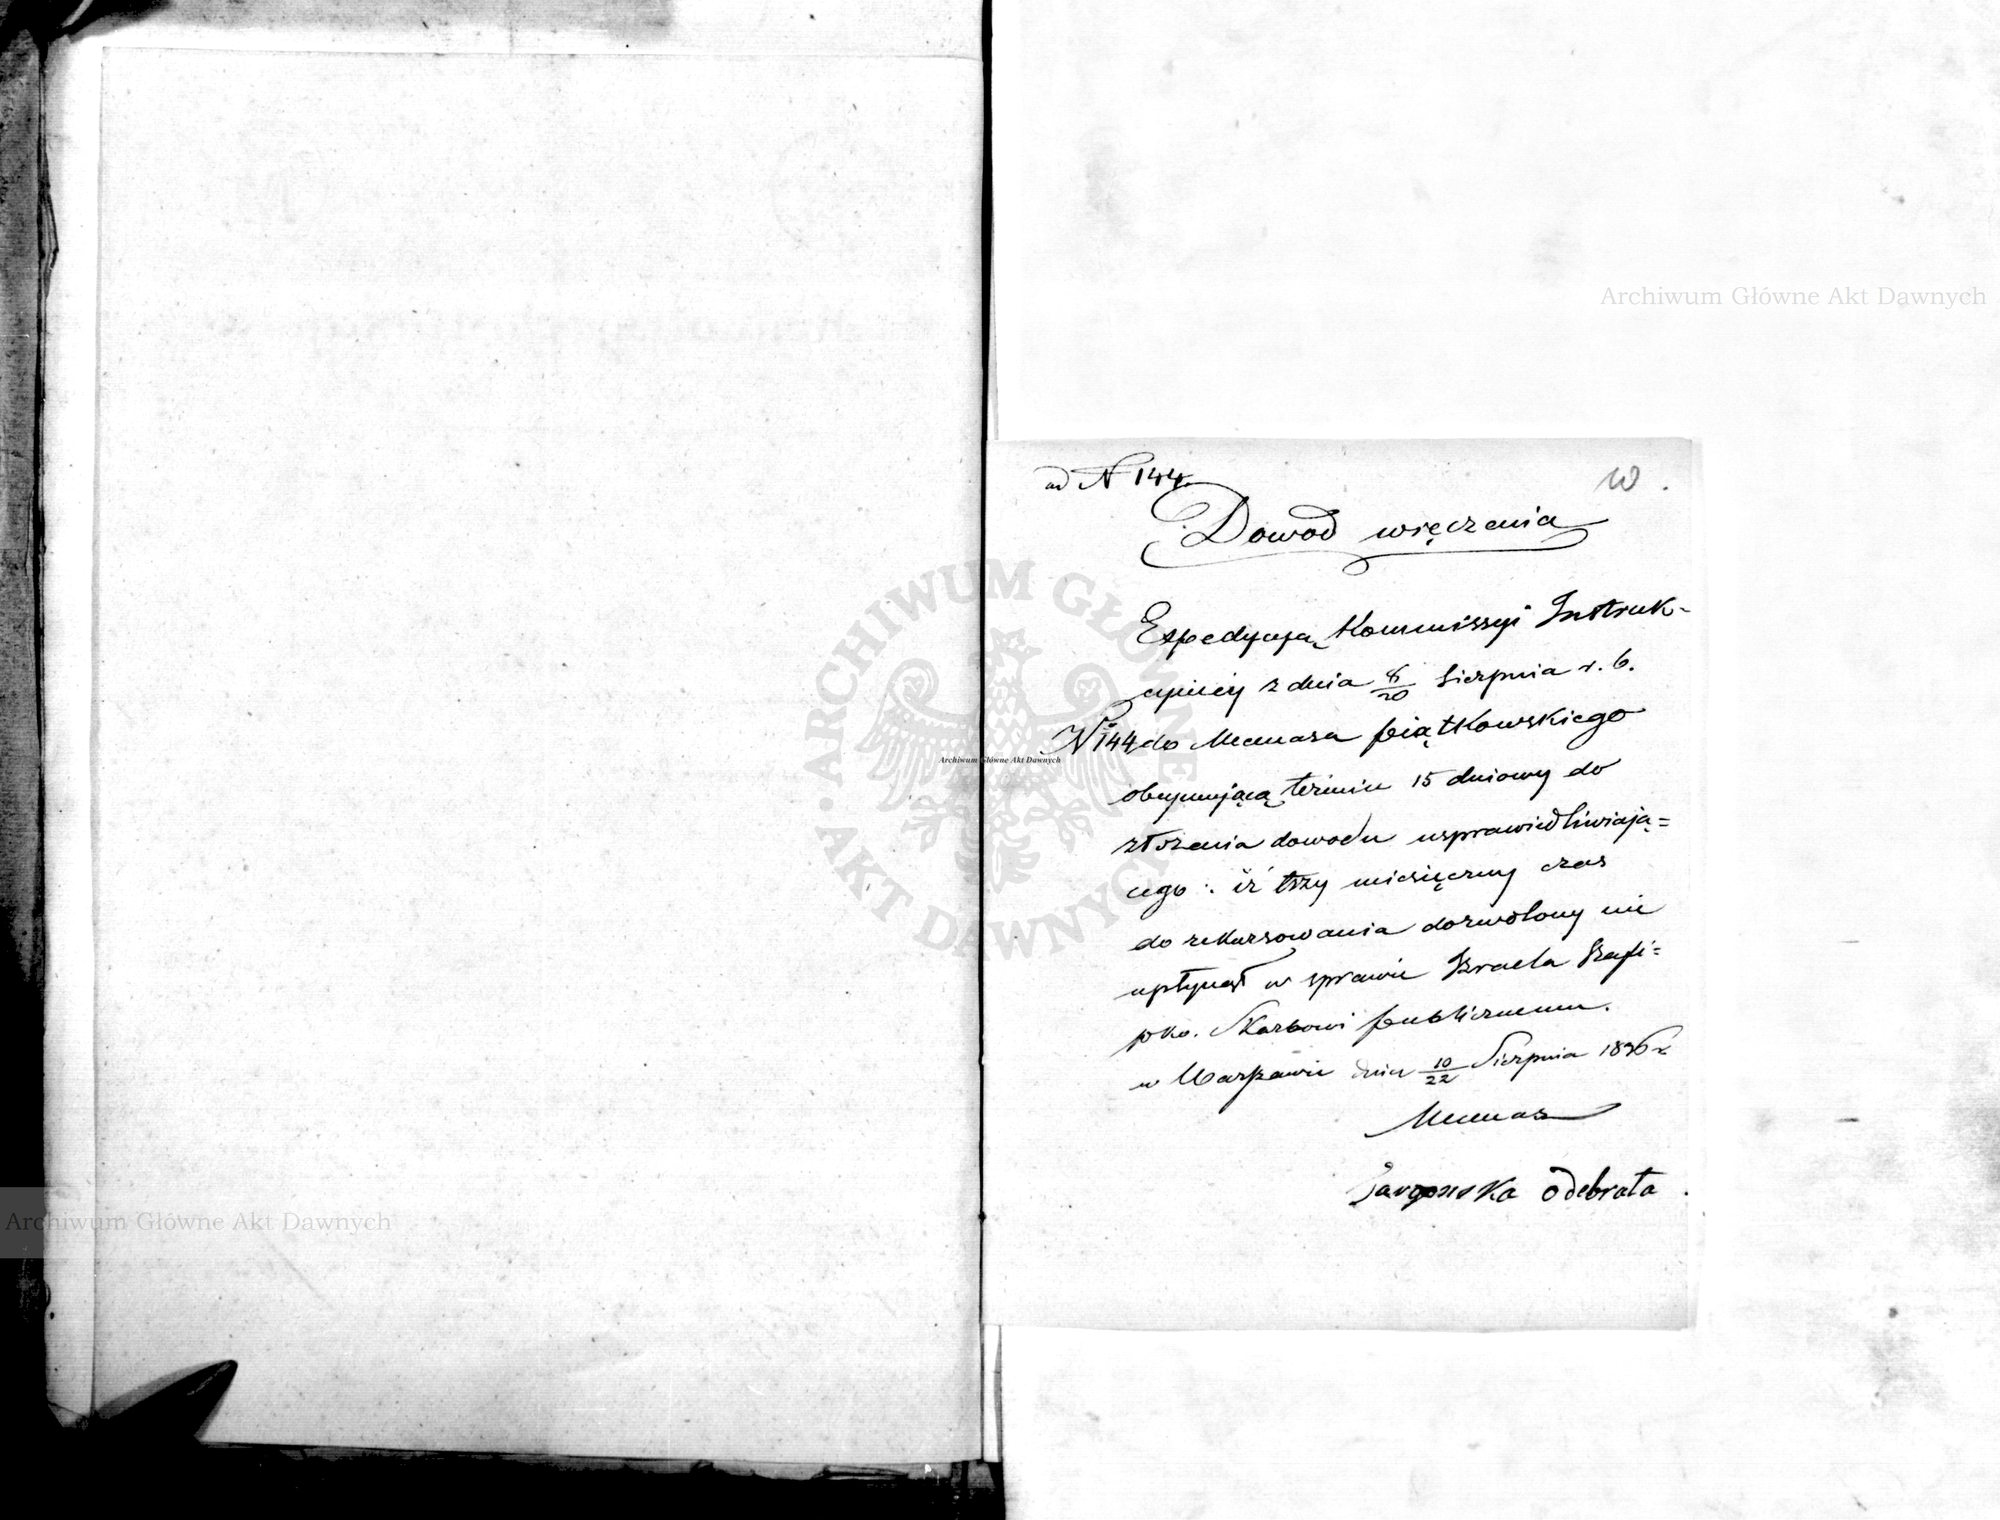 ad N 144.
10.
Dowod wręczenia
Expedycyą Kommissyi Instruk-
cyiney z dnia 8/20 Sierpnia r. b.
No 144 do Mecenasa Piątkowskiego
obeymującą termin 15 dniowy do
złożenia dowodu usprawiedliwiają=
cego: iż trzy miesięczny czas
do rekursowania dozwolony nie
upłynął w sprawie Izraela Szafi=
pko. Skarbowi Publicznemu.
w Warszawie dnia 10/22 Sierpnia 1836 r.
Mecenas
odebrała.
Archiwum Główne Akt Dawnych
Archiwum Główne Akt Dawnych
Archiwum Główne Akt Dawnych
ARCHIWUM GŁÓWNE AKT DAWNYCH